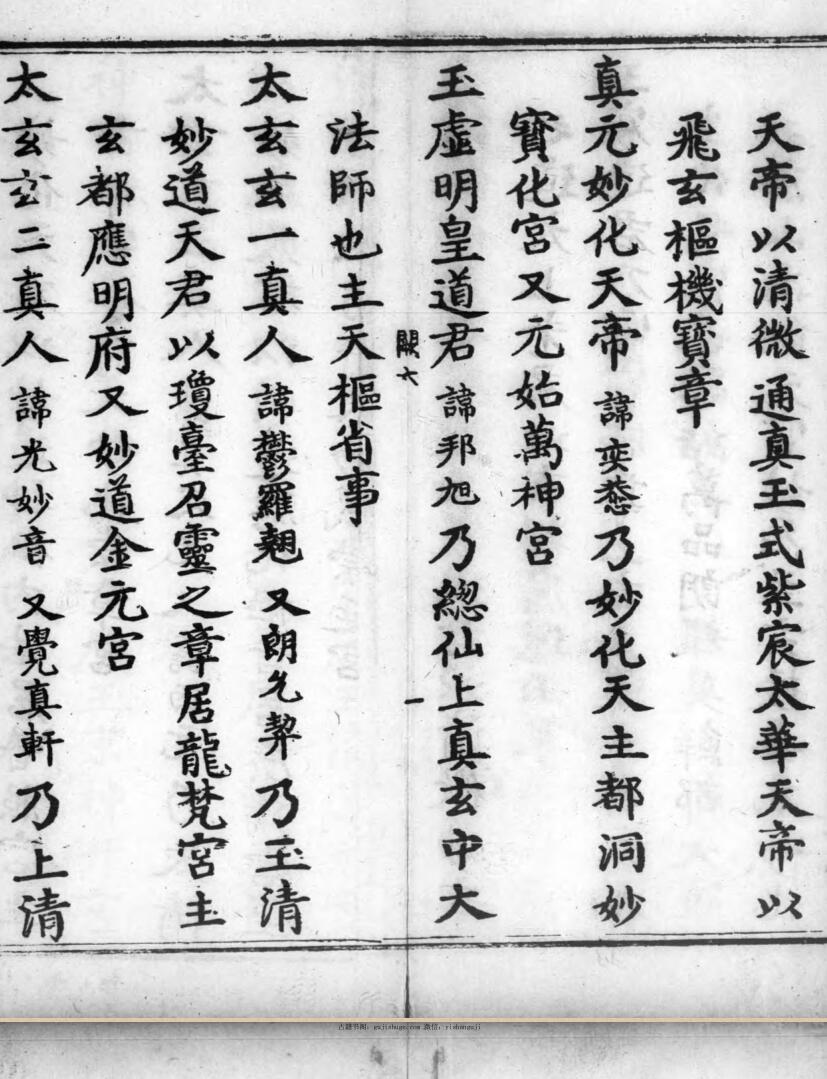 天帝以清微通真玉式紫宸太華天帝以
飛玄樞機寶章
真元妙化天帝諱奕𢡟乃妙化天主都洞妙
寶化宮又元始萬神宮
玉虛明皇道君諱邦旭乃總仙上真玄中大
闕六
一
法師也主天樞省事
太玄玄一真人諱鬱羅翹又朗允栔乃玉清
妙道天君以瓊臺召靈之章居龍梵宮主
玄都應明府又妙道金元宮
太玄玄二真人諱光妙音又覺真軒乃上清
古籍书阁：gujishuge.com 微信：rishengujі